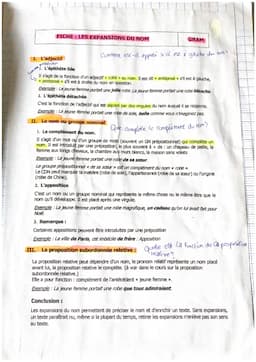 FICHE : LES EXPANSIONS DU NOM GRAM.
I. L'adjectif
1. L'épithète liée
Il s'agit de la fonction d'un adjectif « collé » au nom. Il est dit « antéposé » s'il est à gauche,
« postposé » s'il est à droite du nom en question.
Exemple : La jeune femme portait une jolie robe. La jeune femme portait une robe blanche.
2. L'épithète détachée
C'est la fonction de l'adjectif qui est séparé par des virgules du nom auquel il se rapporte.
Exemple : La jeune femme portait une robe de soie, belle comme vous n'imaginez pas.
II. Le nom ou groupe nominal
1. Le complément du nom.
Il s'agit d'un mot ou d'un groupe de mots (souvent un GN prépositionnel) qui complète un
nom. Il est introduit par une préposition, le plus souvent à « de » : un chapeau de paille, la
femme aux longs cheveux, la chambre aux murs blancs, la maison sans volets
Exemple : La jeune femme portait une robe de sa sœur
Le groupe prépositionnel « de sa sœur » est un complément du nom « robe »
Le CDN peut marquer la matière (robe de soie), l'appartenance (robe de sa sœur) ou l'origine
(robe de Chine).
2. L'apposition
C'est un nom ou un groupe nominal qui représente la même chose ou le même être que le
nom qu'il développe. Il est placé après une virgule.
Exemple : La jeune femme portait une robe magnifique, un cadeau qu'on lui avait fait pour
Noël.
3. Remarques :
Certaines appositions peuvent être introduites par une préposition
Exemple : La ville de Paris, cet imbécile de frère : Apposition
III. La proposition subordonnée relative :
La proposition relative peut dépendre d'un nom, le pronom relatif représente un nom placé
avant lui, la proposition relative le complète. (à voir dans le cours sur la proposition
subordonnée relative.)
Elle a pour fonction : complément de l'antécédent « jeune femme ».
Exemple : La jeune femme portait une robe que tous admiraient.
Conclusion :
Les expansions du nom permettent de préciser le nom et d'enrichir un texte. Sans expansions,
un texte paraîtrait nu, même si la plupart du temps, retirer les expansions n'enlève pas son sens
au texte.